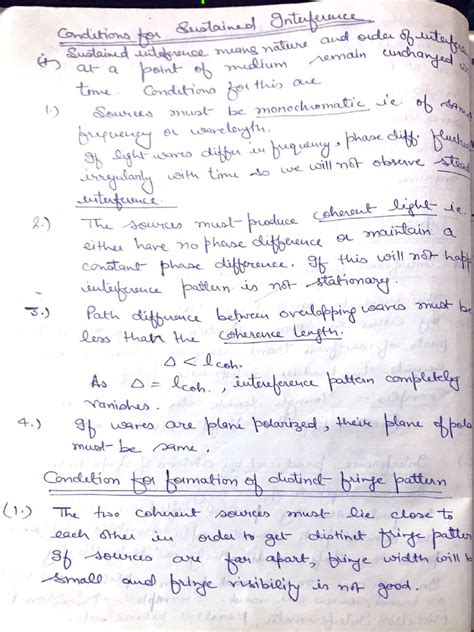 Conditions for Sustained Interference
(*) Sustained interference means nature and order of interfer
at a point of medium remain unchanged
time. Conditions for this are
1.) Sources must be monochromatic i.e. of same
frequency or wavelength.
If light waves differ in frequency, phase diff. fluctu
irregularly with time so we will not observe stead
interference.
2.) The sources must produce coherent light i.e.
either have no phase difference or maintain a
constant phase difference. If this will not happ
interference pattern is not stationary.
3.) Path difference between overlapping waves must be
less than the coherence length.
Δ < lcoh.
As Δ = lcoh. interference pattern completely
vanishes.
4.) If waves are plane polarized, their plane of pola
must be same.
Condition for formation of distinct fringe pattern
(1.) The two coherent sources must lie close to
each other in order to get distinct fringe patter
If sources are far apart, fringe width will b
small and fringe visibility is not good.